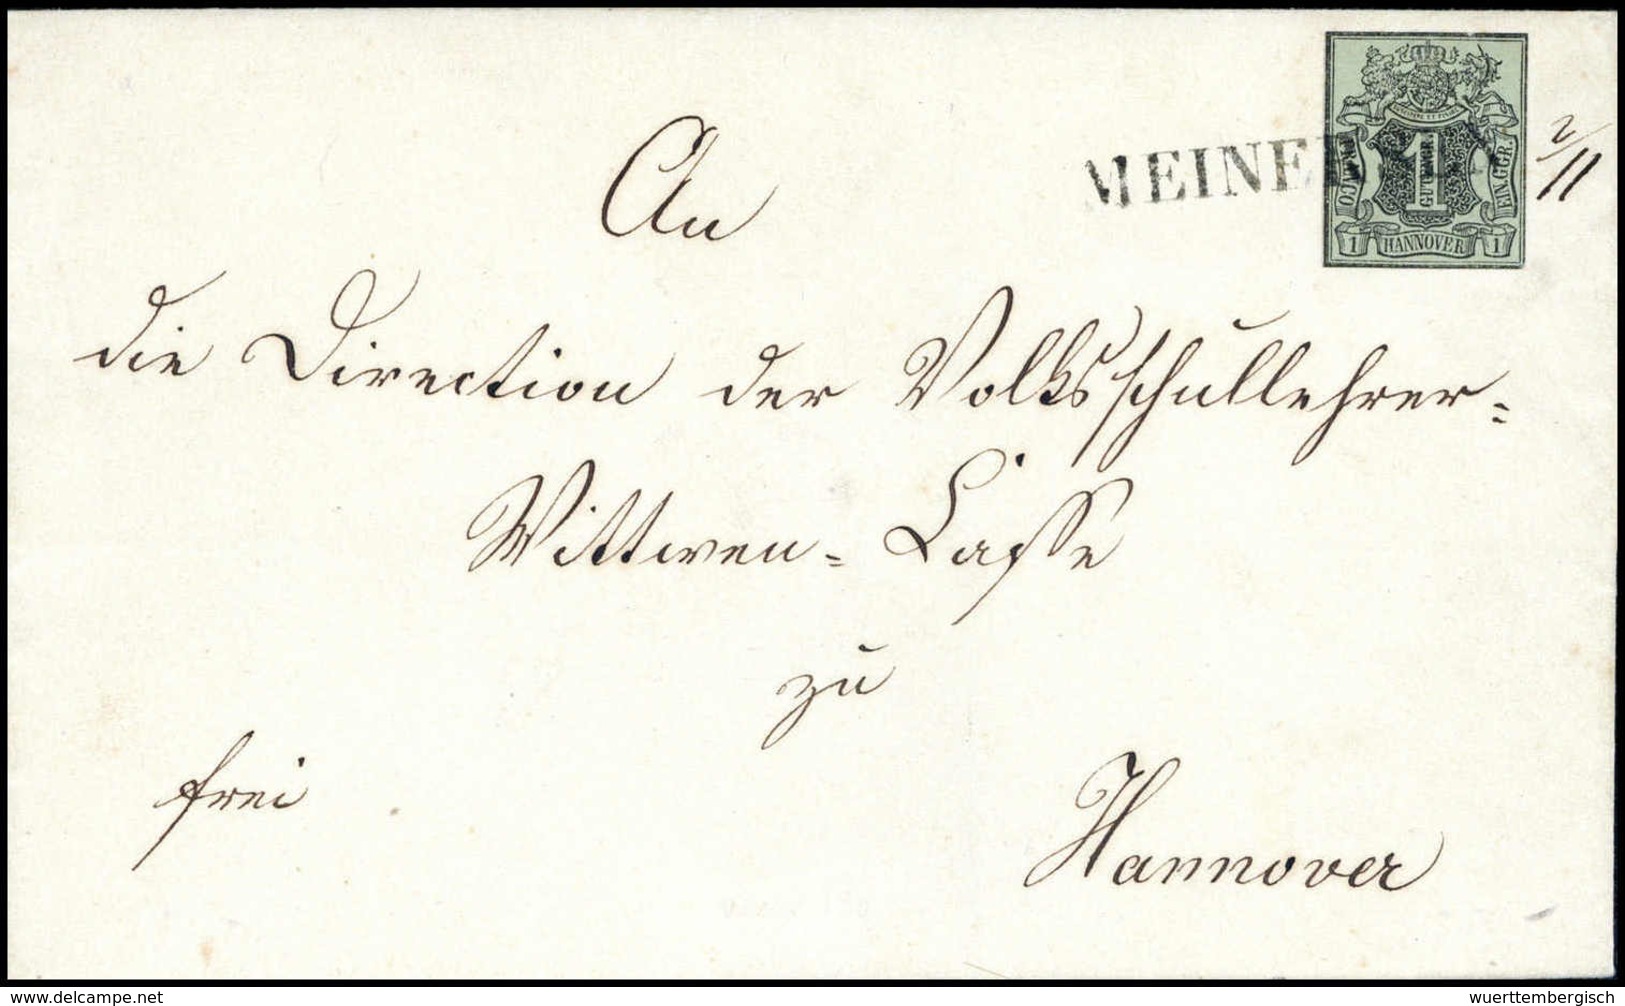 MEINERSEN
2/11
1 GUTENGR.
EIN GGR.
1 HANNOVER 1
An
die Direction der Volksschullehrer=
Wittwen=Casse
zu
frei
Hannover
© www.delcampe.net
wuerttembergisch